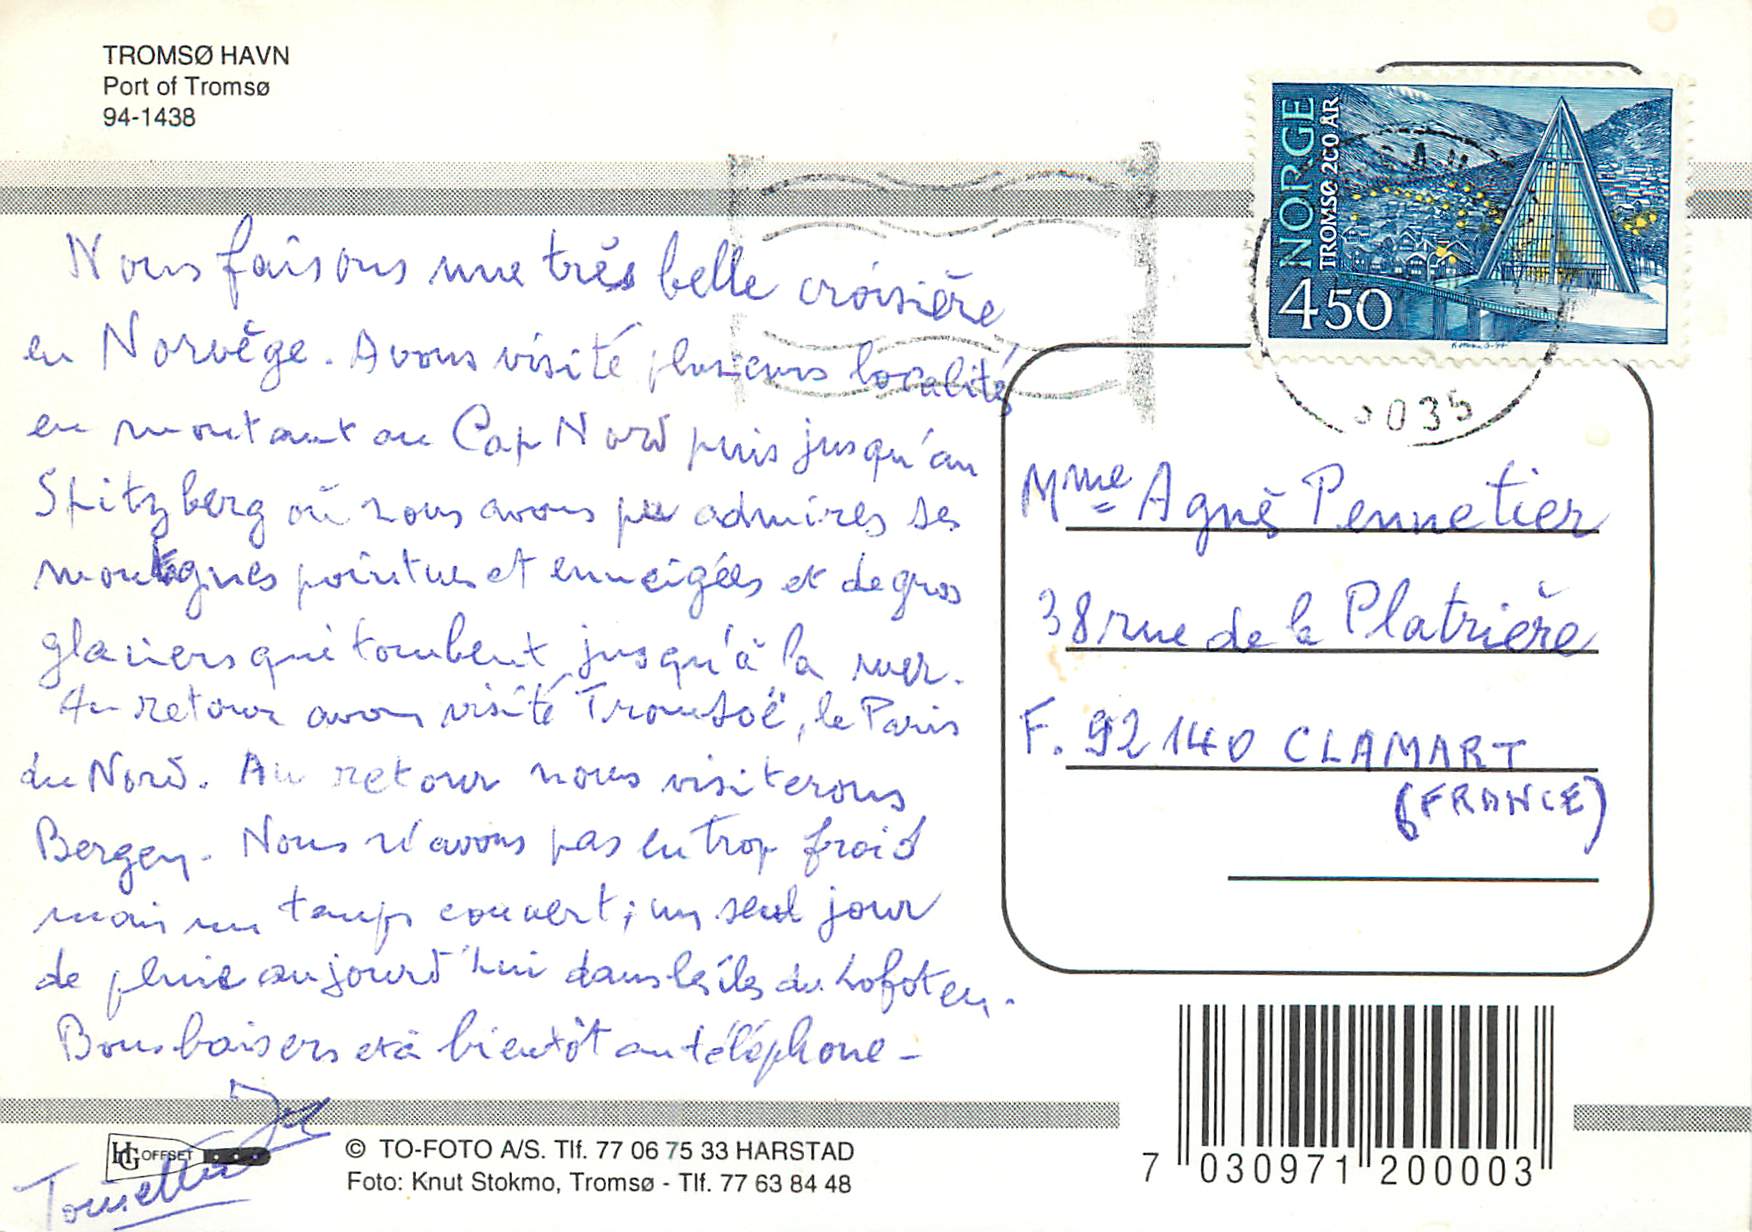 TROMSØ HAVN
Port of Tromsø
94-1438
NORGE
TROMSØ 200 ÅR
450
0035
Nous faisons une très belle croisière
en Norvège. Avons visité plusieurs localités
en montant au Cap Nord puis jusqu'au
Spitzberg où nous avons pu admirer ses
montagnes pointues et enneigées et de gros
glaciers qui tombent jusqu'à la mer.
Au retour avons visité Tromsoë, le Paris
du Nord. Au retour nous visiterons
Bergen. Nous n'avons pas eu trop froid
mais un temps couvert; un seul jour
de pluie aujourd'hui dans les îles du Lofoten.
Bons baisers et à bientôt au téléphone -
Mme Agnès Pennetier
38 rue de la Platrière
F. 92140 CLAMART
(FRANCE)
HG OFFSET
© TO-FOTO A/S. Tlf. 77 06 75 33 HARSTAD
Foto: Knut Stokmo, Tromsø - Tlf. 77 63 84 48
7 030971 200003